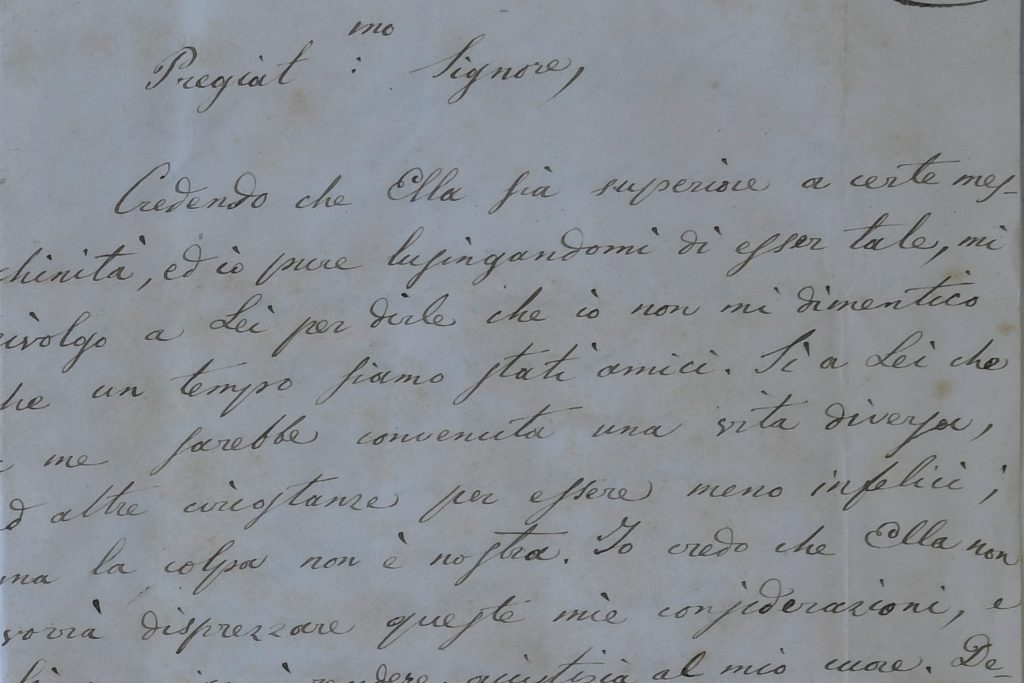 Pregiat:mo Signore,
Credendo che Ella sia superiore a certe mes-
chinità, ed io pure lusingandomi di esser tale, mi
rivolgo a Lei per dirle che io non mi dimentico
che un tempo siamo stati amici. Sì a Lei che
me sarebbe convenuta una vita diversa,
ed altre circostanze per essere meno infelici;
ma la colpa non è nostra. Io credo che Ella non
vorrà disprezzare queste mie considerazioni, e
rendere giustizia al mio cuore. De-